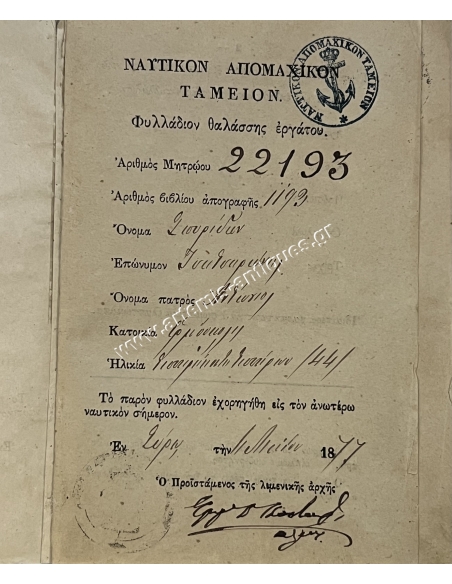 ΝΑΥΤΙΚΟΝ ΑΠΟΜΑΧΙΚΟΝ
ΤΑΜΕΙΟΝ.
ΝΑΥΤΙΚΟΝ ΑΠΟΜΑΧΙΚΟΝ ΤΑΜΕΙΟΝ
Φυλλάδιον θαλάσσης ἐργάτου.
Ἀριθμὸς Μητρῴου 22193
Ἀριθμὸς βιβλίου ἀπογραφῆς 1193
Ὄνομα Σπυρίδων
Ἐπώνυμον
Ὄνομα πατρὸς Ἀντώνιος
Κατοικία Ἑρμούπολις
Ἡλικία /44/
Τὸ παρὸν φυλλάδιον ἐχορηγήθη εἰς τὸν ἀνωτέρω
ναυτικὸν σήμερον.
Ἐν Σύρῳ τὴν 1877
Ὁ Προϊστάμενος τῆς λιμενικῆς ἀρχῆς
www.artemis-antiques.gr